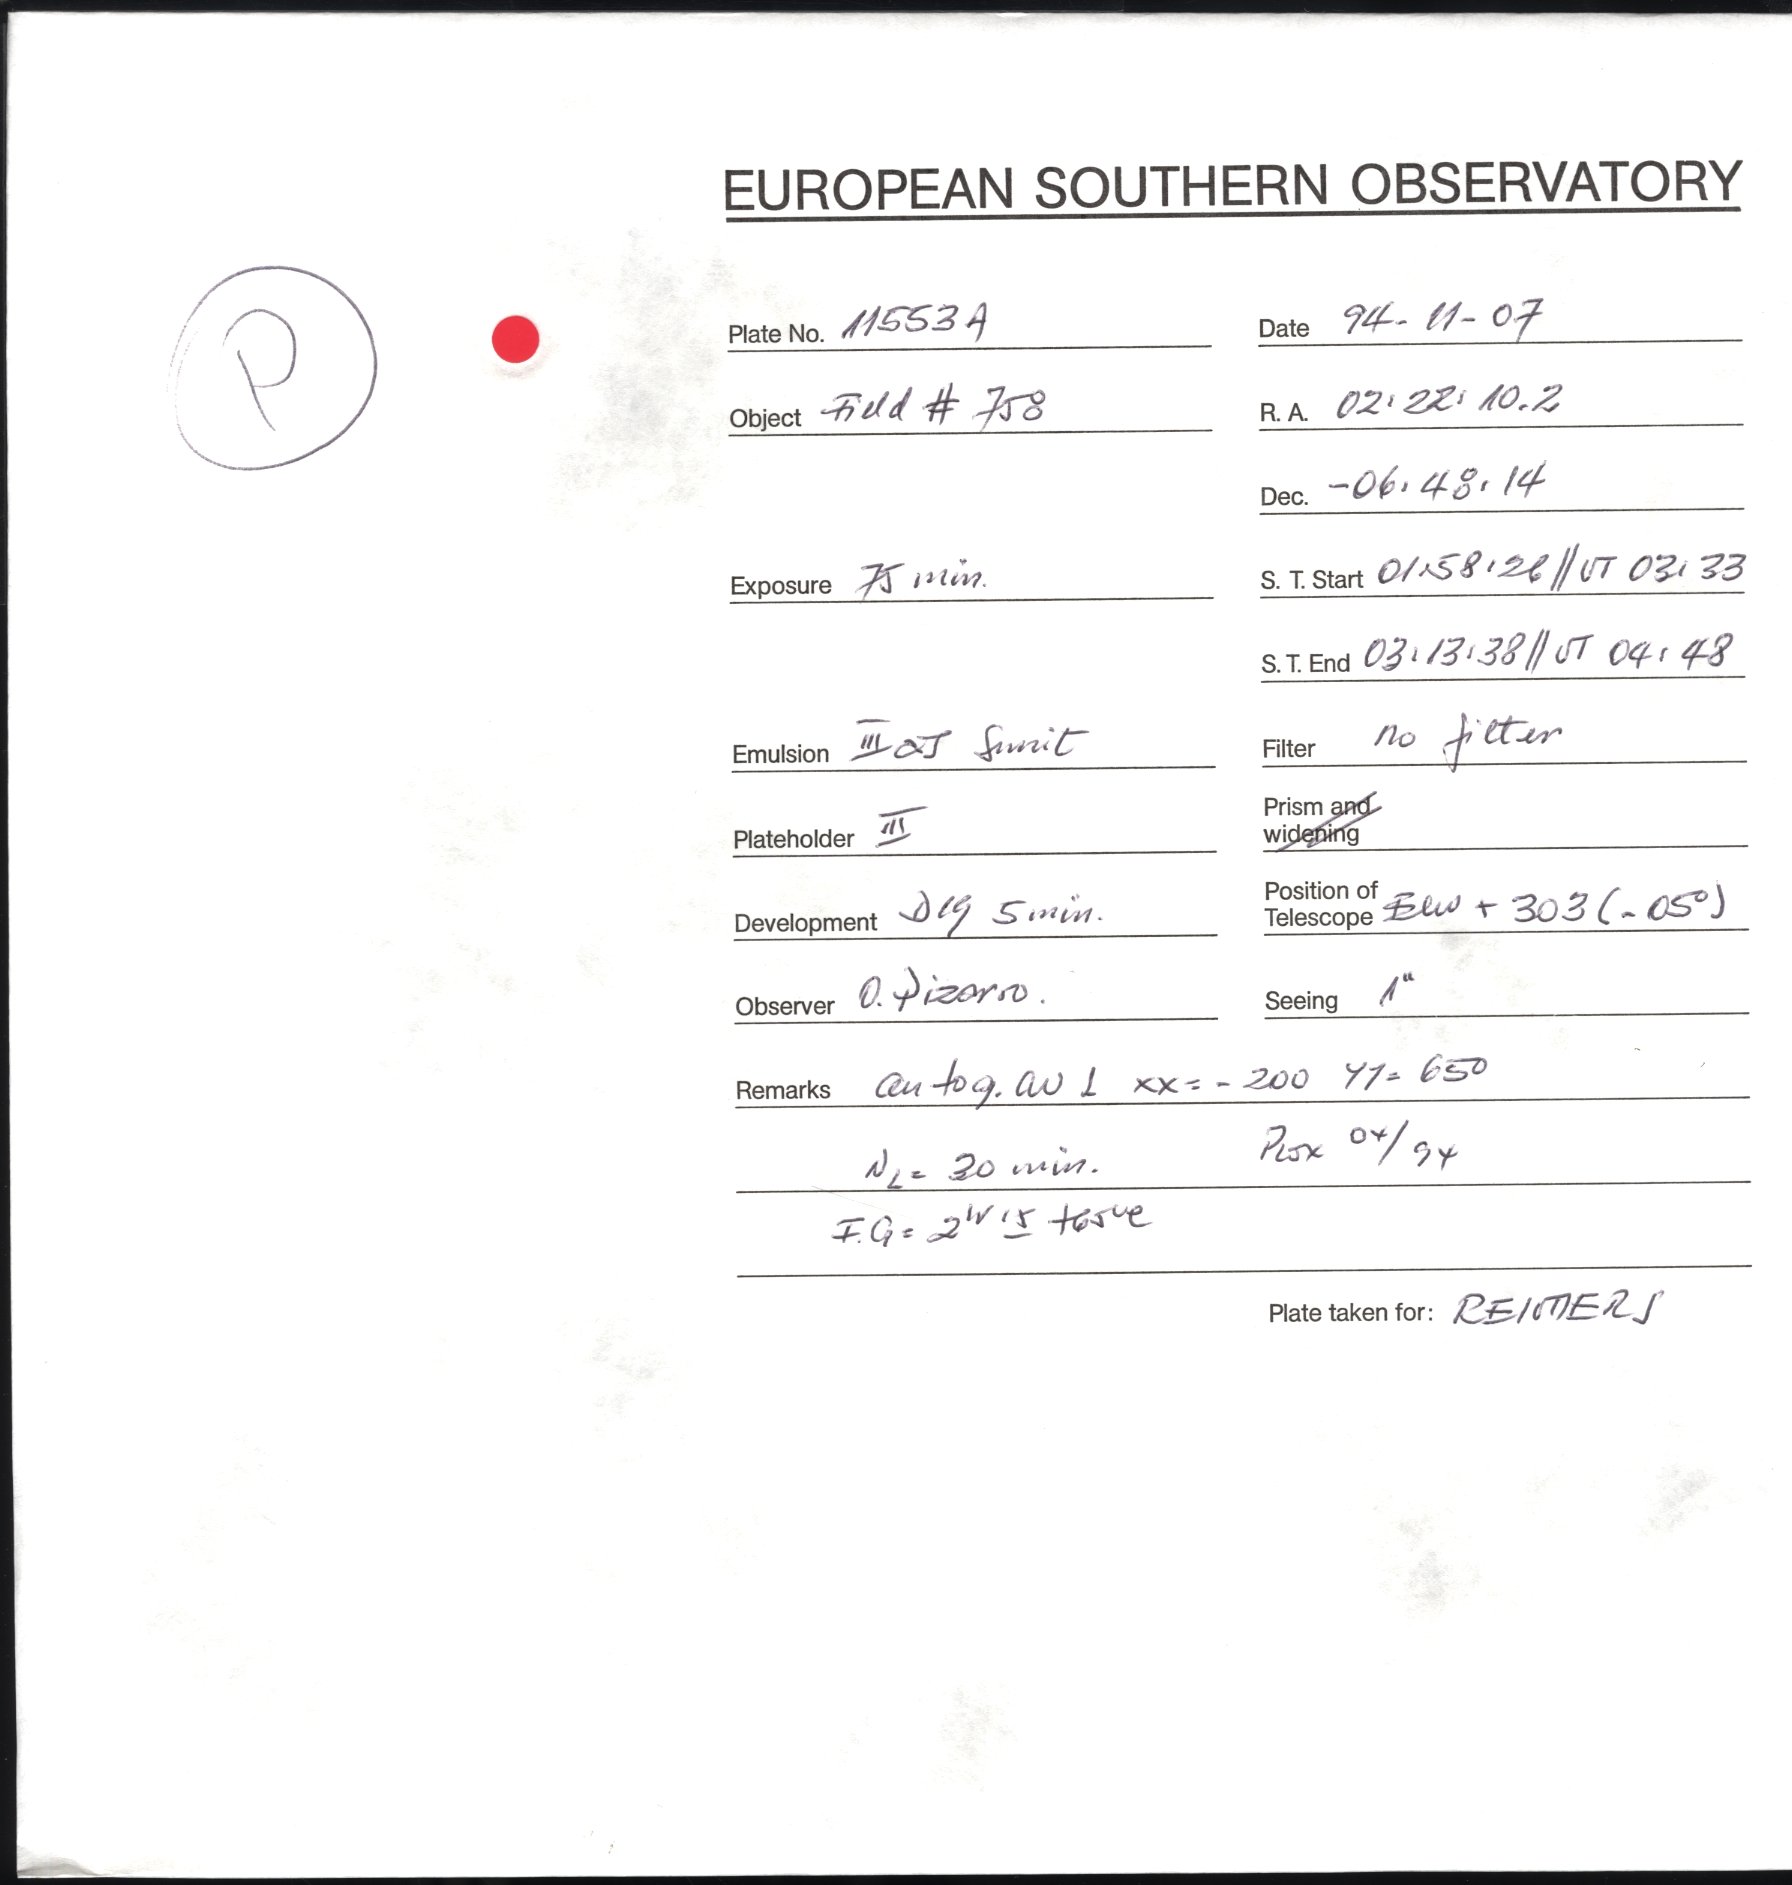 EUROPEAN SOUTHERN OBSERVATORY
P
Plate No. 11553A Date 94-11-07
Object Field # 758 R. A. 02:22:10.2
Dec. -06:48:14
Exposure 75 min. S. T. Start 01:58:26//UT 03:33
S. T. End 03:13:38//UT 04:48
Emulsion III aJ Filter no filter
Plateholder III Prism and widening
Development D19 5 min. Position of Telescope + 303 (-.05°)
Observer O. Pizarro. Seeing 1"
Remarks autog. xx = - 200 yy = 650
NL = 30 min. 04/94
F.G =
Plate taken for: REIMERS